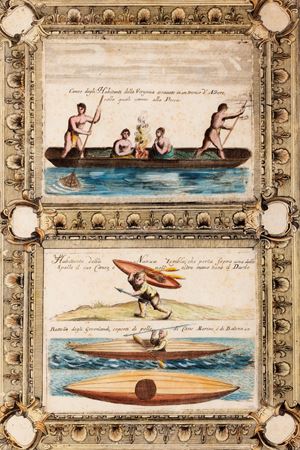 Canoe degli Habitanti della Virginia scavato in un tronco d'Albero,
colla quali vanno alla Pesca
Habitante della Nuova Zembla, che porta sopra una delle
Spalle il suo Canoe, e nell' altra mano tiene il Dardo
Battello degli Groenlandi, coperti di pelle di Cane Marino, ò di Balena